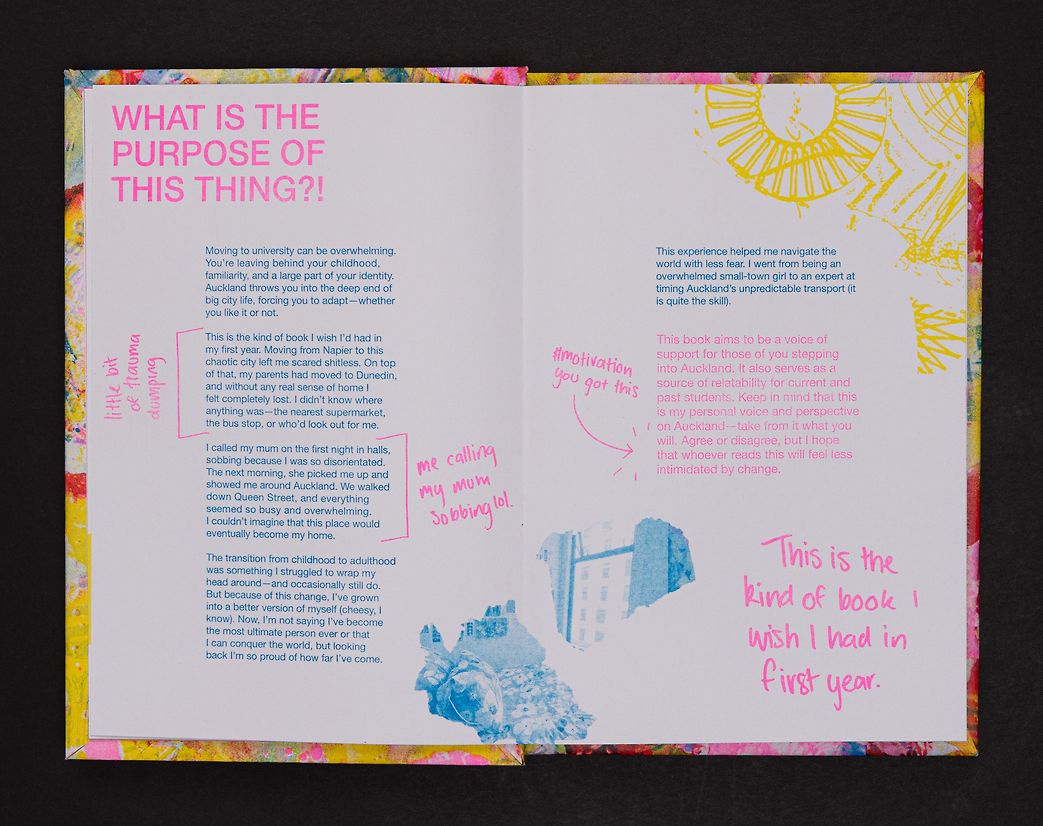 WHAT IS THE
PURPOSE OF
THIS THING?!
Moving to university can be overwhelming.
You're leaving behind your childhood,
familiarity, and a large part of your identity.
Auckland throws you into the deep end of
big city life, forcing you to adapt—whether
you like it or not.
little bit
of trauma
dumping
This is the kind of book I wish I'd had in
my first year. Moving from Napier to this
chaotic city left me scared shitless. On top
of that, my parents had moved to Dunedin,
and without any real sense of home I
felt completely lost. I didn't know where
anything was—the nearest supermarket,
the bus stop, or who'd look out for me.
I called my mum on the first night in halls,
sobbing because I was so disorientated.
The next morning, she picked me up and
showed me around Auckland. We walked
down Queen Street, and everything
seemed so busy and overwhelming.
I couldn't imagine that this place would
eventually become my home.
me calling
my mum
sobbing lol.
The transition from childhood to adulthood
was something I struggled to wrap my
head around—and occasionally still do.
But because of this change, I've grown
into a better version of myself (cheesy, I
know). Now, I'm not saying I've become
the most ultimate person ever or that
I can conquer the world, but looking
back I'm so proud of how far I've come.
This experience helped me navigate the
world with less fear. I went from being an
overwhelmed small-town girl to an expert at
timing Auckland's unpredictable transport (it
is quite the skill).
#motivation
you got this
This book aims to be a voice of
support for those of you stepping
into Auckland. It also serves as a
source of relatability for current and
past students. Keep in mind that this
is my personal voice and perspective
on Auckland—take from it what you
will. Agree or disagree, but I hope
that whoever reads this will feel less
intimidated by change.
This is the
kind of book I
wish I had in
first year.